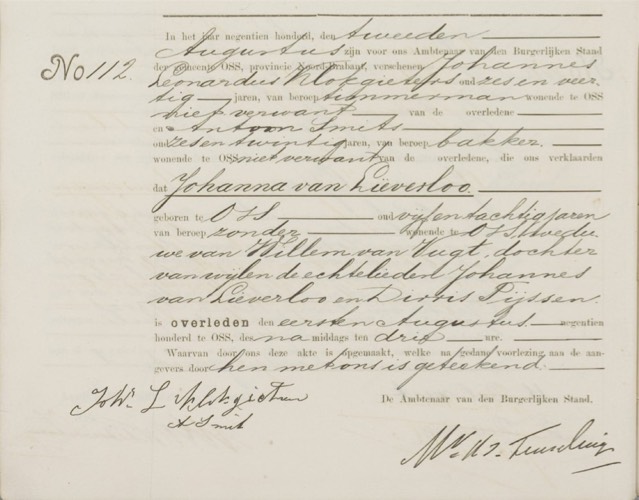 In het jaar negentien honderd, den tweeden
Augustus zijn voor ons Ambtenaar van den Burgerlijken Stand
No 112. der gemeente OSS, provincie Noord-Brabant, verschenen Johannes
Leonardus Klokgieters oud zes en veer-
tig jaren, van beroep timmerman wonende te OSS
niet verwant van de overledene
en Antoon Smits
oud zes en twintig jaren, van beroep bakker.
wonende te OSS niet verwant van de overledene, die ons verklaarden
dat Johanna van Lieverloo.
geboren te Oss oud vijf en tachtig jaren
van beroep zonder wonende te Oss, wedu
we van Willem van Vugt, dochter
van wijlen de echtelieden Johannes
van Lieverloo en Dorris Pijssen.
is overleden den eersten Augustus negentien
honderd te OSS, des na middags ten drie ure.
Waarvan door ons deze akte is opgemaakt, welke na gedane voorlezing, aan de aan-
gevers door hen met ons is geteekend.
De Ambtenaar van den Burgerlijken Stand.
A Smit